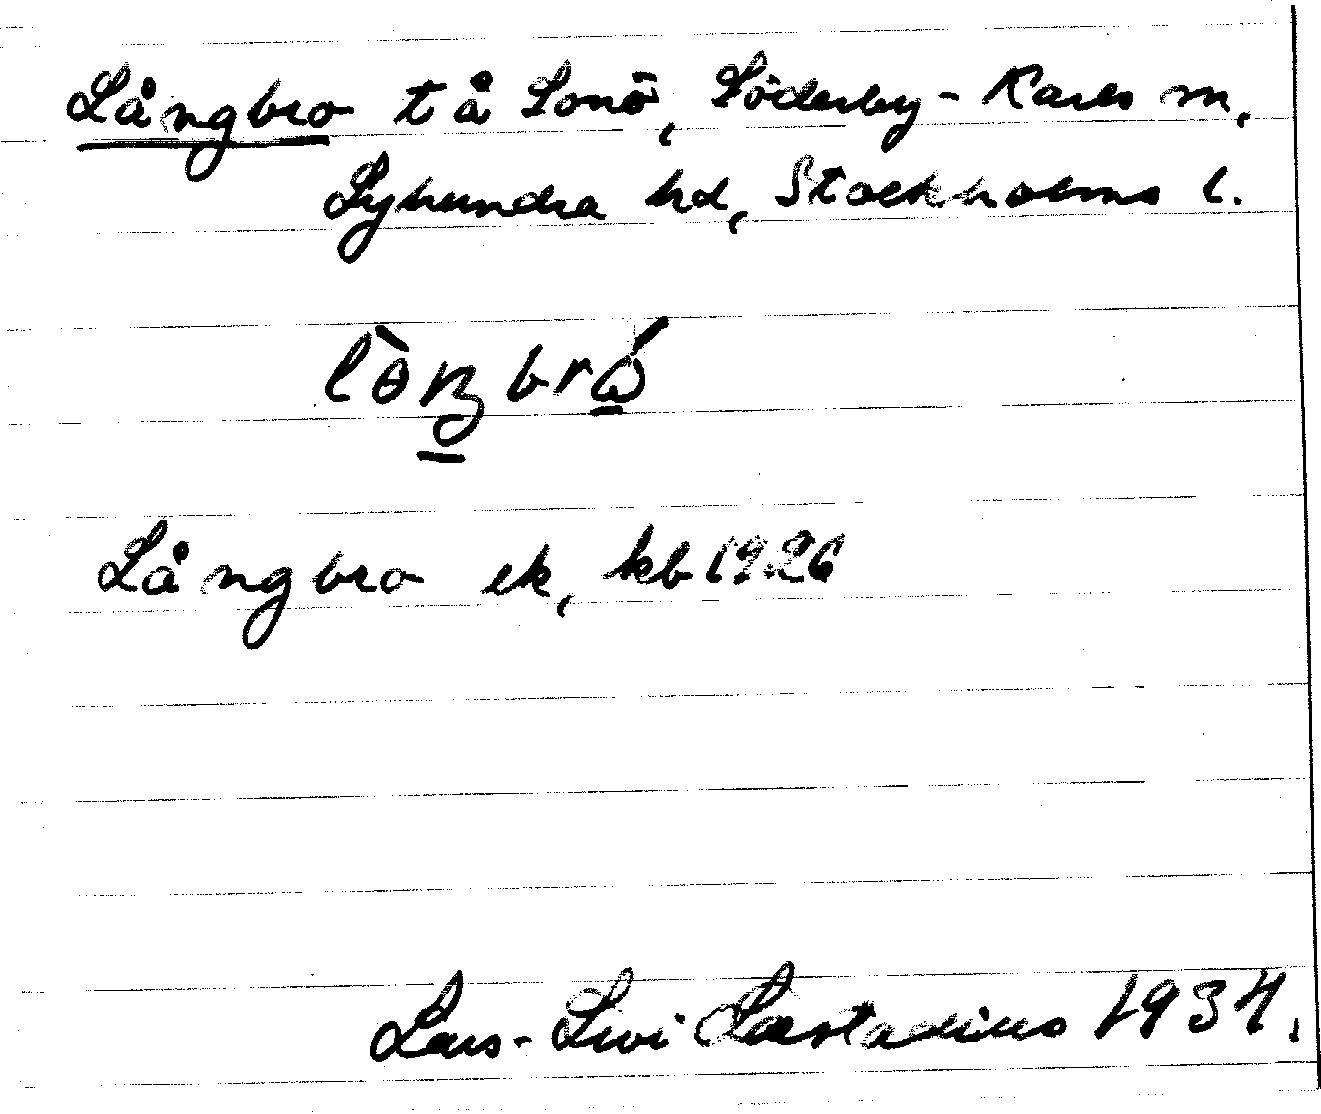 Långbro t å Lonö, Söderby-Karls sn,
Lyhundra hd, Stockholms l.
lòŋbró
Långbro ek, kb 1926
Lars-Levi Læstadius 1934.